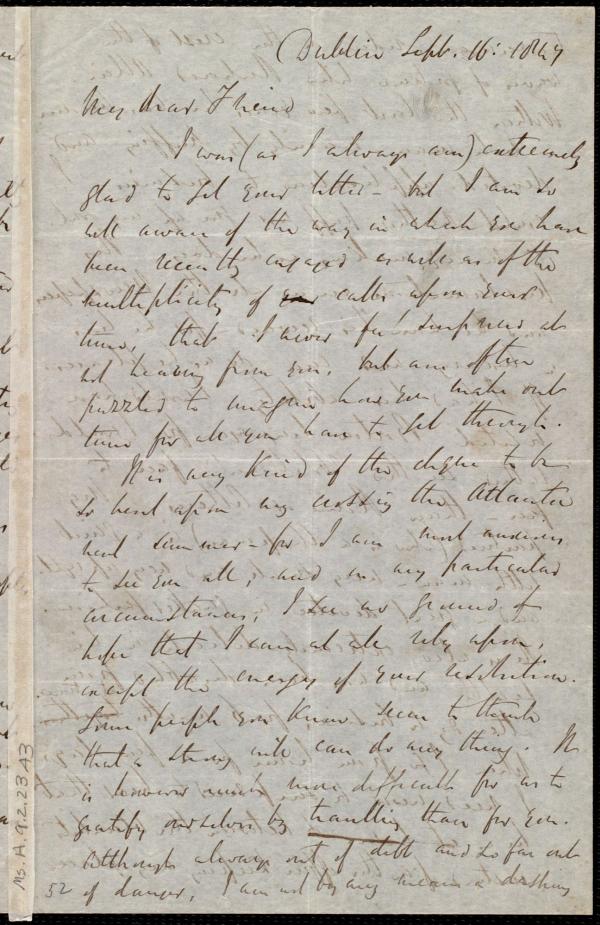 Dublin Sept. 16: 1847
My dear Friend
I was (as I always am) extremely
glad to get your letter - but I am so
well aware of the way in which you have
been recently engaged as well as of the
multiplicity of your calls upon your
time, that I never feel surprised at
not hearing from you, but am often
puzzled to imagine how you make out
time for all you have to get through.
It is very kind of the clique to be
so bent upon my crossing the Atlantic
next summer - for I am most anxious
to see you all, and in my particular
circumstances, I see no ground of
hope that I can at all rely upon,
except the energy of your resolution.
Some people you know seem to think
that a strong will can do any thing. It
is however much more difficult for us to
gratify ourselves by travelling than for you.
Although always out of debt and so far out
of danger, I am not by any means a dashing
52
Ms. A. 9. 2. 23 A3